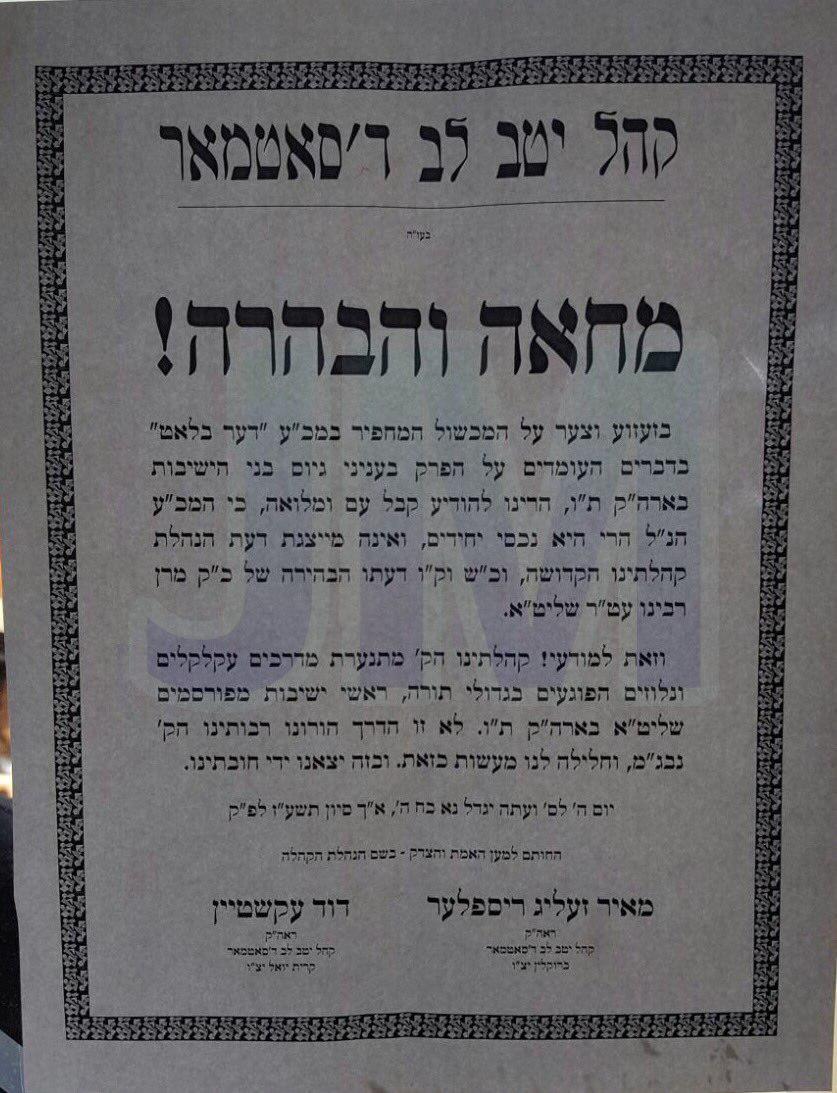 קהל יטב לב ד'סאטמאר
בעז"ה
מחאה והבהרה!
בזעזוע וצער על המכשול המחפיר במכ"ע "דער בלאט"
בדברים העומדים על הפרק בעניני גיוס בני הישיבות
בארה"ק ת"ו, הדינו להודיע קבל עם ומלואה, כי המכ"ע
הנ"ל הרי היא נכסי יחידים, ואינה מייצגת דעת הנהלת
קהלתינו הקדושה, וכ"ש וק"ו דעתו הבהירה של כ"ק מרן
רבינו עט"ר שליט"א.
וזאת למודעי! קהלתינו הק' מתנערת מדרכים עקלקלים
ונלוזים הפוגעים בגדולי תורה, ראשי ישיבות מפורסמים
שליט"א בארה"ק ת"ו. לא זו הדרך הורונו רבותינו הק'
נבג"מ, וחלילה לנו מעשות כזאת. ובזה יצאנו ידי חובתינו.
יום ה' לס' ועתה יגדל נא כח ה', א"ך סיון תשע"ז לפ"ק
החותם למען האמת והצדק - בשם הנהלת הקהלה
מאיר זעליג ריספלער
ראה"ק
קהל יטב לב ד'סאטמאר
ברוקלין יצ"ו
דוד עקשטיין
ראה"ק
קהל יטב לב ד'סאטמאר
קרית יואל יצ"ו
JM